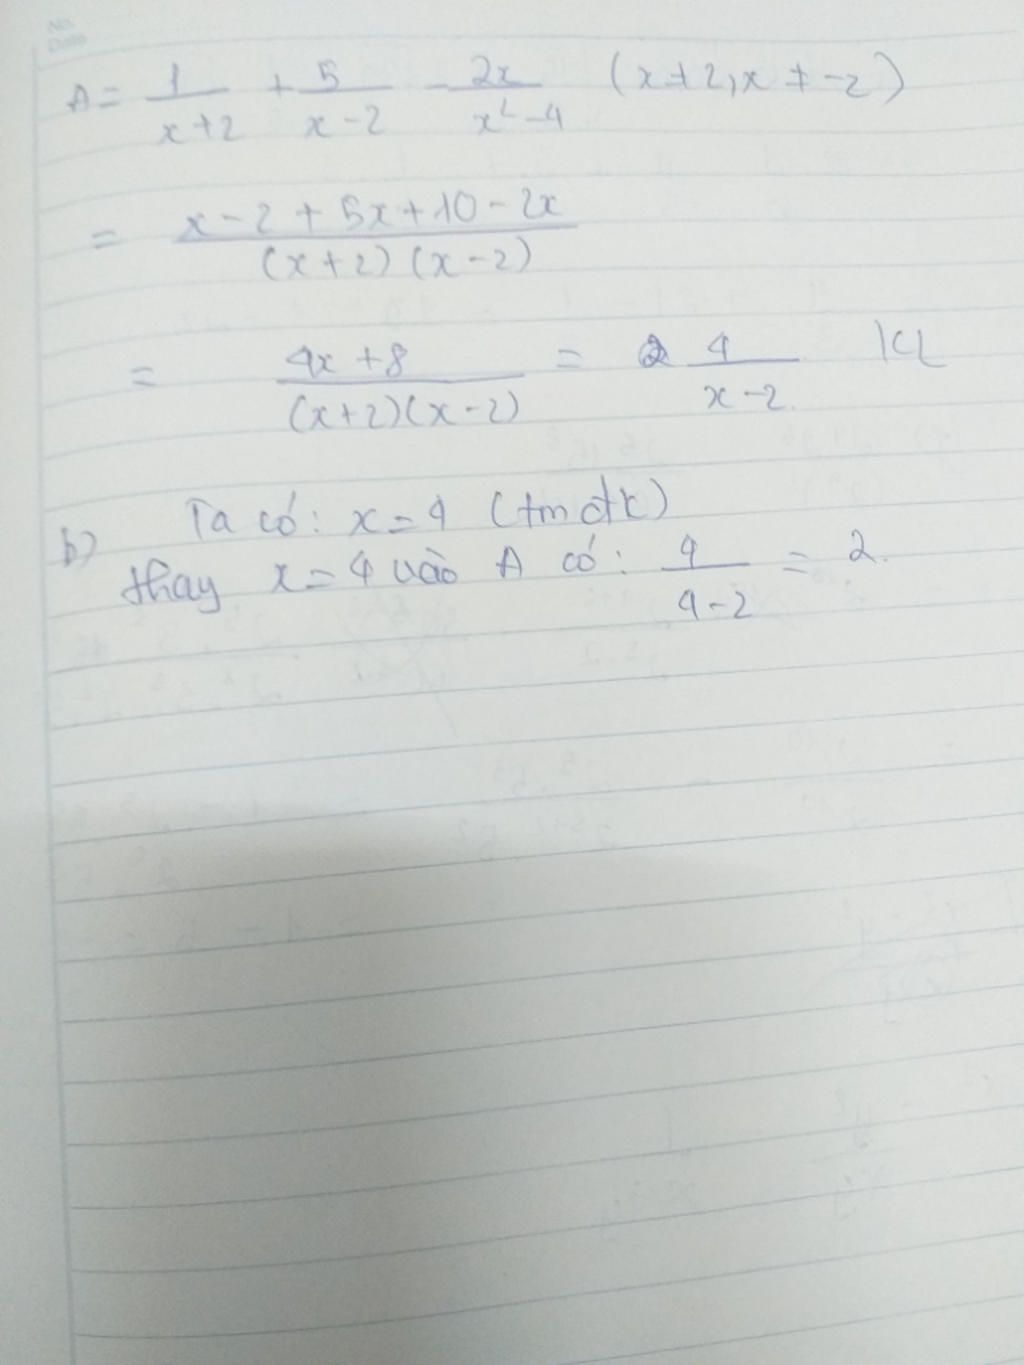 No.
Date
A = 1/(x+2) + 5/(x-2) - 2x/(x²-4) (x≠2, x≠-2)
= (x-2+5x+10-2x)/((x+2)(x-2))
= (4x+8)/((x+2)(x-2)) = 4/(x-2) KL
b) Ta có: x=4 (tmđk)
thay x=4 vào A có: 4/(4-2) = 2.